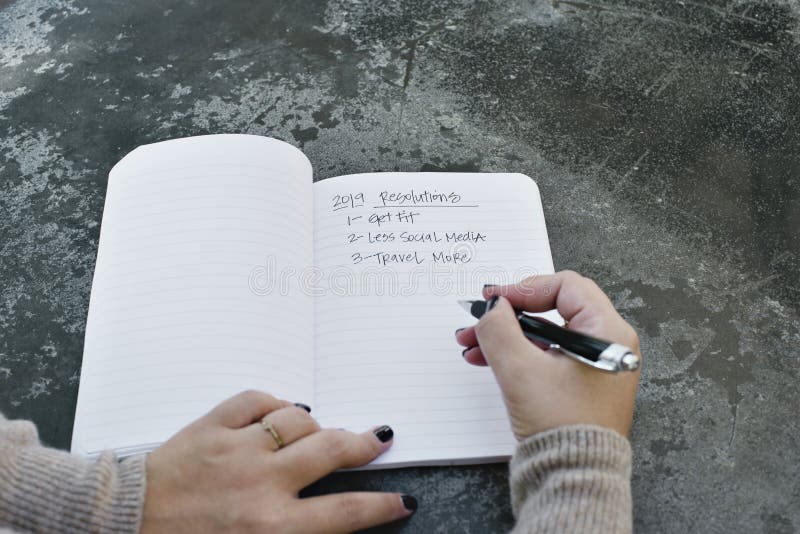 2019 Resolutions
1- Get Fit
2- Less Social Media
3- Travel More
dreamstime